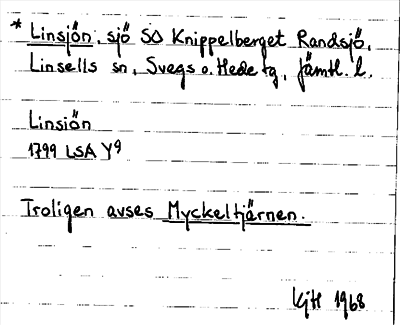 * Linsjön, sjö SO Knippelberget Randsjö,
Linsells sn, Svegs o. Hede tg, Jämtl. l.
Linsiön
1799 LSA Y9
Troligen avses Myckeltjärnen.
KjH 1968